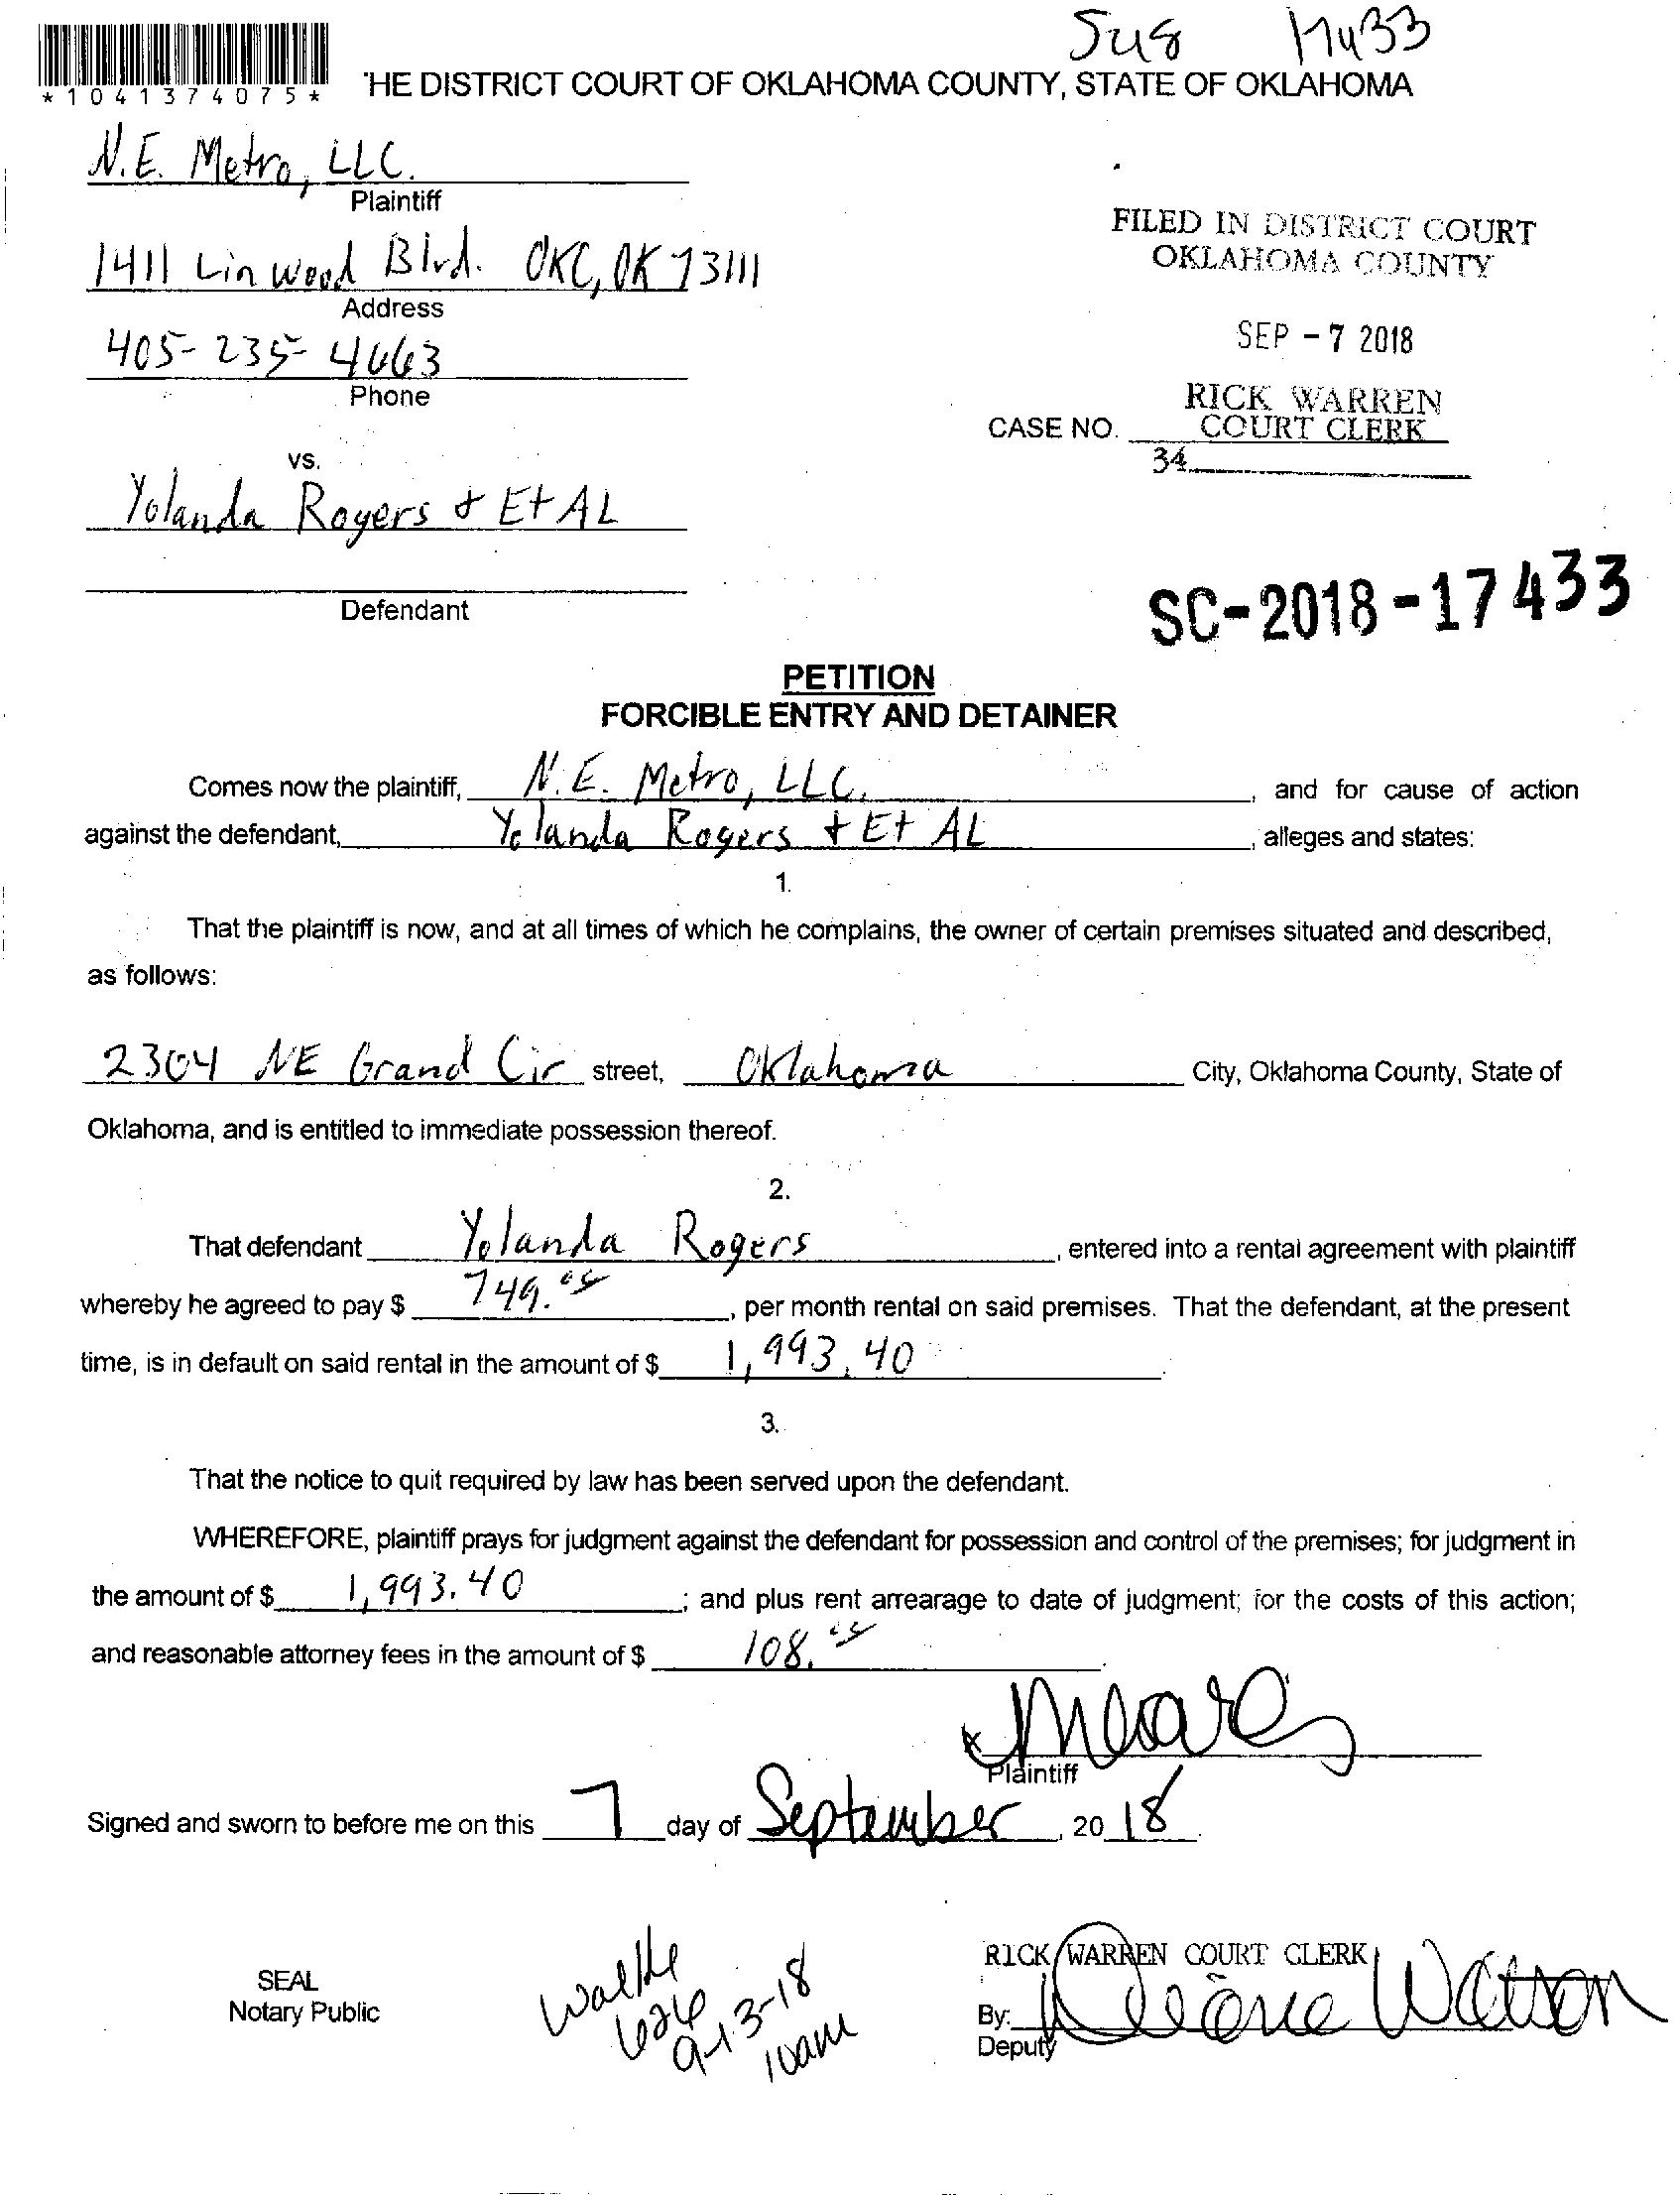 Sug 17433
*1041374075*
'HE DISTRICT COURT OF OKLAHOMA COUNTY, STATE OF OKLAHOMA
N.E. Metro, LLC.
Plaintiff
1411 Linwood Blvd. OKC, OK 73111
Address
405-235-4663
Phone
FILED IN DISTRICT COURT
OKLAHOMA COUNTY
SEP - 7 2018
RICK WARREN
COURT CLERK
CASE NO.
34
vs.
Yolanda Rogers + Et AL
Defendant
SC-2018-17433
PETITION
FORCIBLE ENTRY AND DETAINER
Comes now the plaintiff, N.E. Metro, LLC, , and for cause of action
against the defendant, Yolanda Rogers + Et AL , alleges and states:
1.
That the plaintiff is now, and at all times of which he complains, the owner of certain premises situated and described,
as follows:
2304 NE Grand Cir street, Oklahoma City, Oklahoma County, State of
Oklahoma, and is entitled to immediate possession thereof.
2.
That defendant Yolanda Rogers , entered into a rental agreement with plaintiff
whereby he agreed to pay $ 749.00 , per month rental on said premises. That the defendant, at the present
time, is in default on said rental in the amount of $ 1,993.40 .
3.
That the notice to quit required by law has been served upon the defendant.
WHEREFORE, plaintiff prays for judgment against the defendant for possession and control of the premises; for judgment in
the amount of $ 1,993.40 ; and plus rent arrearage to date of judgment; for the costs of this action;
and reasonable attorney fees in the amount of $ 108.00 .
x
Plaintiff
Signed and sworn to before me on this 7 day of September , 20 18 .
SEAL
Notary Public
624
9-13-18
10am
RICK WARREN COURT CLERK
By: Watson
Deputy